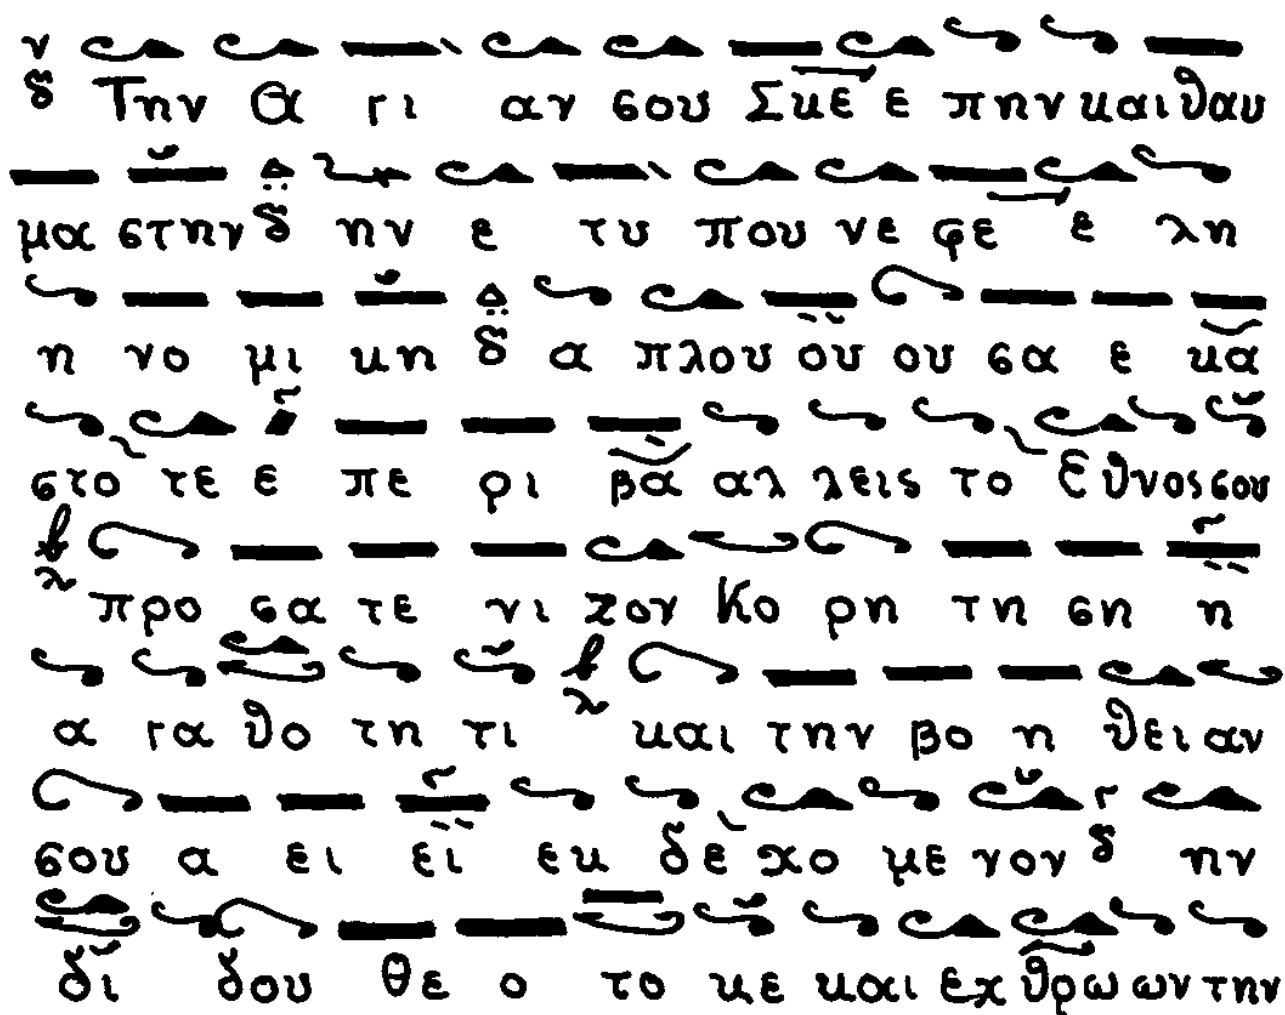 ν δ Την Α γι αν σου Σκε ε πην και θαυ
μα στην δ ην ε τυ που νε φε ε λη
η νο μι κη δ α πλου ου ου σα ε κα
στο τε ε πε ρι βα αλ λεις το Εθνος σου
προ σα τε νι ζον Κο ρη τη ση η
α γα θο τη τι και την βο η θει αν
σου α ει ει εκ δε χο με νον δ ην
δι δου Θε ο το κε και εχ θρω ων την